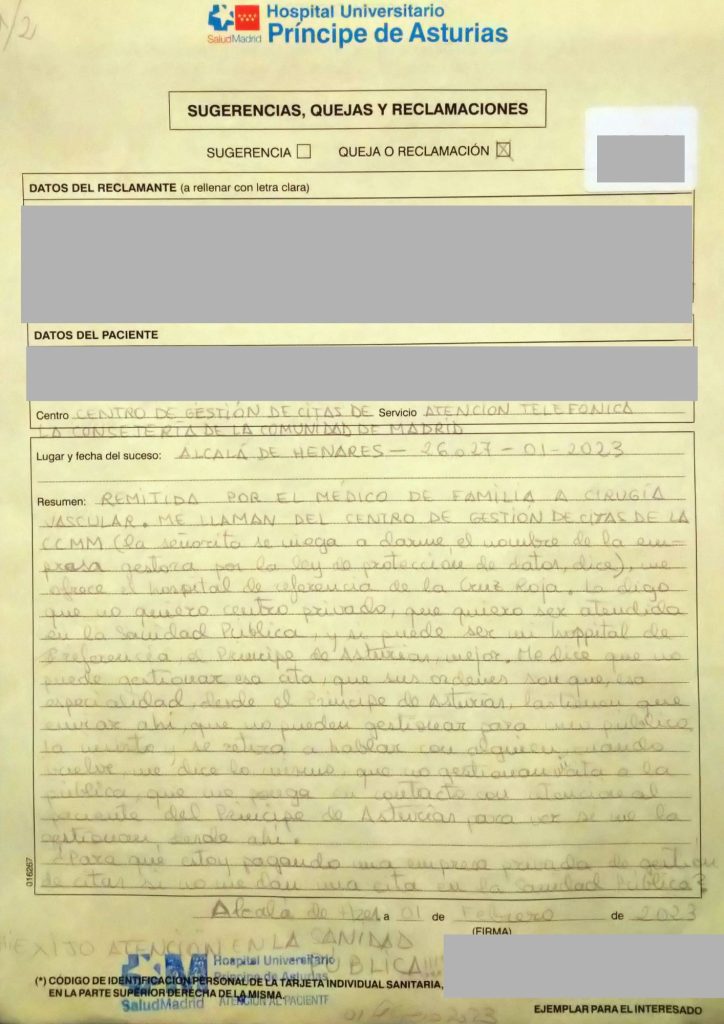 1/2
Hospital Universitario
Príncipe de Asturias
SaludMadrid
SUGERENCIAS, QUEJAS Y RECLAMACIONES
SUGERENCIA QUEJA O RECLAMACIÓN
DATOS DEL RECLAMANTE (a rellenar con letra clara)
DATOS DEL PACIENTE
Centro CENTRO DE GESTIÓN DE CITAS DE Servicio ATENCIÓN TELEFÓNICA
LA CONSEJERÍA DE LA COMUNIDAD DE MADRID
Lugar y fecha del suceso: ALCALÁ DE HENARES - 26 o 27 - 01 - 2023
Resumen: REMITIDA POR EL MÉDICO DE FAMILIA A CIRUGÍA
VASCULAR. ME LLAMAN DEL CENTRO DE GESTIÓN DE CITAS DE LA
CCMM (la señorita se niega a darme el nombre de la em-
presa gestora por la ley de protección de datos, dice), me
ofrece el hospital de referencia de la Cruz Roja. Le digo
que no quiero centro privado, que quiero ser atendida
en la Sanidad Pública, y si puede ser mi hospital de
Referencia, el Príncipe de Asturias, mejor. Me dice que no
puede gestionar esa cita, que sus órdenes son que, esa
especialidad, desde el Príncipe de Asturias, las tienen que
enviar ahí, que no pueden gestionar para la pública,
y se retira a hablar con alguien, cuando
vuelve, me dice lo mismo, que no gestionan cita a la
pública, que me ponga en contacto con atención al
paciente del Príncipe de Asturias para ver si me la
gestionan, desde ahí.
¿Para qué estoy pagando una empresa privada de gestión
de citas si no me dan una cita en la Sanidad Pública?
Alcalá de Hres a 01 de Febrero de 2023
(FIRMA)
EXIJO ATENCIÓN EN LA SANIDAD
PÚBLICA!!!
Hospital Universitario
Príncipe de Asturias
ATENCIÓN AL PACIENTE
SaludMadrid
(*) CÓDIGO DE IDENTIFICACIÓN PERSONAL DE LA TARJETA INDIVIDUAL SANITARIA,
EN LA PARTE SUPERIOR DERECHA DE LA MISMA.
EJEMPLAR PARA EL INTERESADO
016267